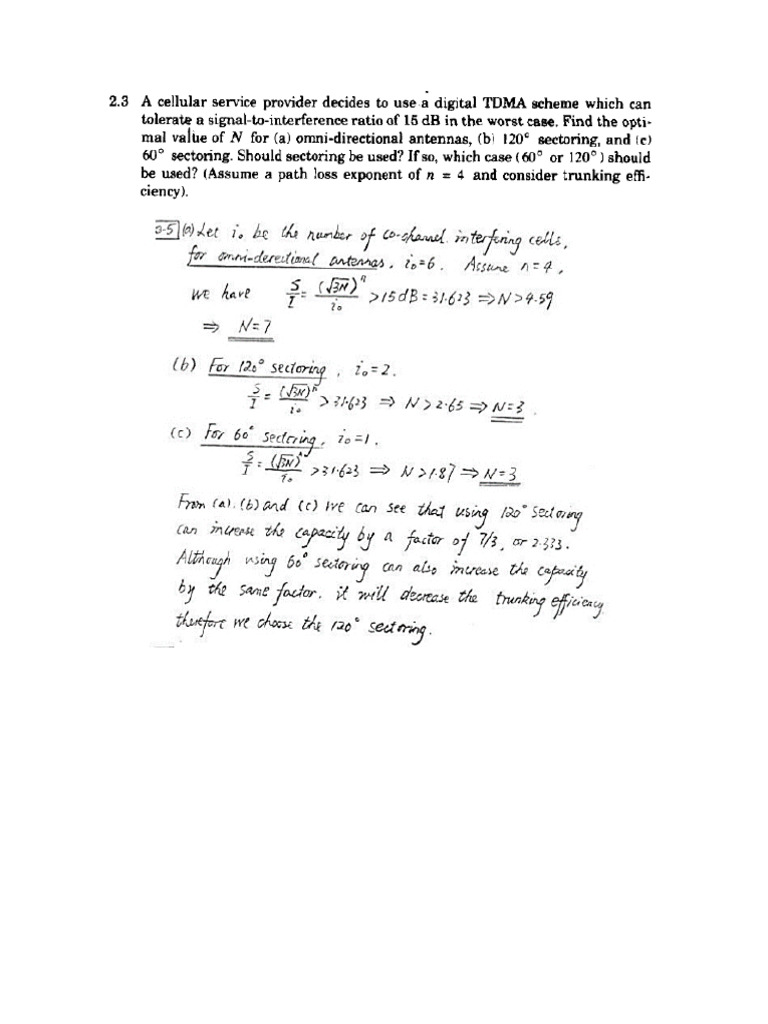 2.3 A cellular service provider decides to use a digital TDMA scheme which can
tolerate a signal-to-interference ratio of 15 dB in the worst case. Find the opti-
mal value of N for (a) omni-directional antennas, (b) 120° sectoring, and (c)
60° sectoring. Should sectoring be used? If so, which case (60° or 120°) should
be used? (Assume a path loss exponent of n = 4 and consider trunking effi-
ciency).
3.5 (a) Let i₀ be the number of co-channel interfering cells,
for omni-derectional antennas, i₀=6. Assume n=4,
we have S/I = (√3N)ⁿ/i₀ > 15dB = 31.623 ⇒ N > 4.59
⇒ N=7
(b) For 120° sectoring, i₀=2.
S/I = (√3N)ⁿ/i₀ > 31.623 ⇒ N > 2.65 ⇒ N=3.
(c) For 60° sectoring, i₀=1.
S/I = (√3N)ⁿ/i₀ > 31.623 ⇒ N > 1.87 ⇒ N=3
From (a), (b) and (c) we can see that using 120° sectoring
can increase the capacity by a factor of 7/3, or 2.333.
Although using 60° sectoring can also increase the capacity
by the same factor, it will decrease the trunking efficiency
therefore we choose the 120° sectoring.